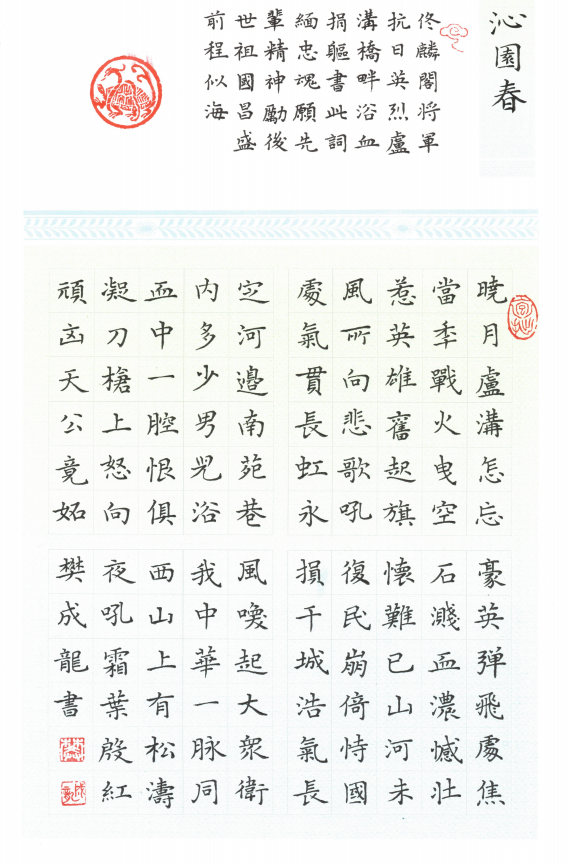 沁園春
佟麟閣将軍
抗日英烈盧
溝橋畔浴血
捐軀書此詞
緬忠魂願先
輩精神勵後
世祖國昌盛
前程似海
曉月盧溝怎忘
當秊戰火曳空
惹英雄奮起旗
風所向悲歌吼
處氣貫長虹永
定河邊南苑巷
内多少男兒浴
血中一腔恨俱
凝刀槍上怒向
頑凶天公竟妬
豪英弹飛處焦
石濺血濃憾壯
懷難已山河未
復民崩倚恃國
損干城浩氣長
風喚起大衆衛
我中華一脉同
西山上有松濤
夜吼霜葉殷紅
樊成龍書